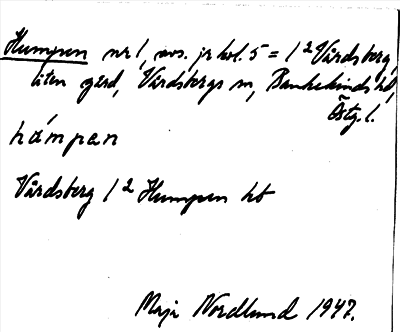 Humpen nr 1, avs. jr bl. 5 = 1² Vårdsberg,
liten gård, Vårdsbergs sn, Bankekinds hd,
Östg. l.
hámpan
Vårdsberg 1² Humpen kb
Maja Nordlund 1947.